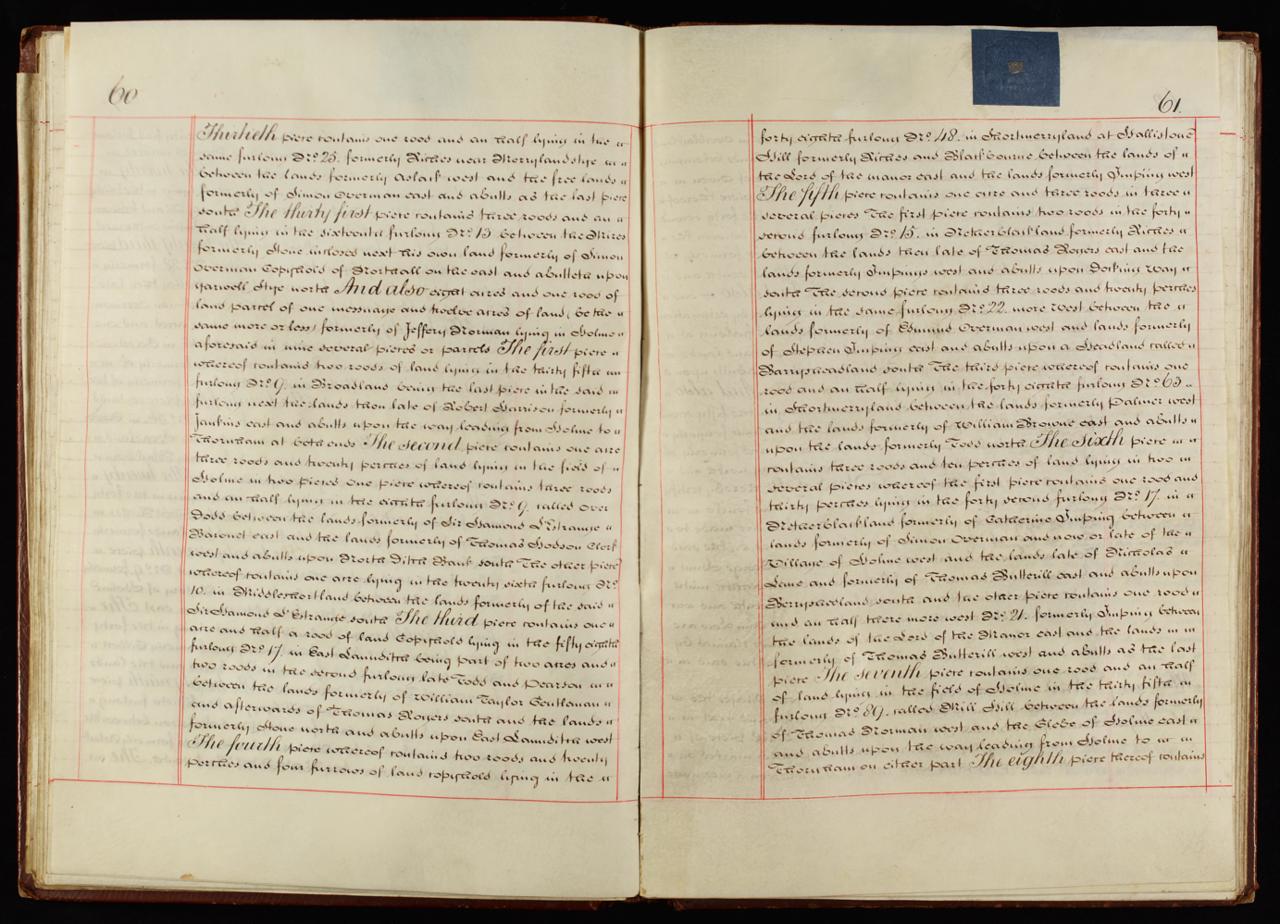 60
Thirtieth piece contains one rood and an half lying in the "
same furlong No. 25. formerly Riches near Merrylandstye in "
between the lands formerly Aslack west and the free lands "
formerly of Simon Overman east and abutts as the last piece
south The thirty first piece contains three roods and an "
half lying in the sixteenth furlong No. 15 between the Meres
formerly Gone inclosed next his own land formerly of Simon
Overman Copyhold of Northall on the east and abutteth upon
Yarwell Stye north And also eight acres and one rood of
land parcel of one messuage and twelve acres of land (be the "
same more or less) formerly of Jeffery Norman lying in Holme "
aforesaid in nine several pieces or parcels The first piece "
whereof contains two roods of land lying in the thirty fifth "
furlong No. 9. in Broadland being the last piece in the said "
furlong next the lands then late of Robert Harrison formerly "
Jenkins east and abutts upon the way leading from Holme to "
Thornham at both ends The second piece contains one acre
three roods and twenty perches of land lying in the field of "
Holme in two pieces one piece whereof contains three roods
and an half lying in the eighth furlong No. 9. called Over
Dodd between the lands formerly of Sir Hamond L'Estrange "
Baronet east and the lands formerly of Thomas Hodson Clerk
west and abutts upon North Ditch Bank south The other piece
whereof contains one acre lying in the twenty sixth furlong No.
10. in Middleshortland between the lands formerly of the said "
Sir Hamond L'Estrange south The third piece contains one "
acre and half a rood of land Copyhold lying in the fifty eighth
furlong No. 17. in East Launditch being part of two acres and "
two roods in the second furlong late Todd and Pearson in "
between the lands formerly of William Taylor Gentleman "
and afterwards of Thomas Rogers south and the lands "
formerly Gone north and abutts upon East Launditch west
The fourth piece whereof contains two roods and twenty
perches and four furrows of land copyhold lying in the "
61.
forty eighth furlong No. 48. in Shortmerryland at Hallistone
Hill formerly Riches and Blackbourne between the lands of "
the Lord of the manor east and the lands formerly Imping west
The fifth piece contains one acre and three roods in three "
several pieces The first piece contains two roods in the forty "
second furlong No. 15. in Netherblackland formerly Riches "
between the lands then late of Thomas Rogers east and the
lands formerly Impings west and abutts upon Docking Way "
south The second piece contains three roods and twenty perches
lying in the same furlong No. 22. more west between the "
lands formerly of Edmund Overman west and lands formerly
of Stephen Imping east and abutts upon a Headland called "
Barrysheadland south The third piece whereof contains one
rood and an half lying in the forty eighth furlong No. 65 "
in Shortmerryland between the lands formerly Palmer west
and the lands formerly of William Browne east and abutts "
upon the lands formerly Todd north The sixth piece "
contains three roods and ten perches of land lying in two "
several pieces whereof the first piece contains one rood and
thirty perches lying in the forty second furlong No. 17. in "
Netherblackland formerly of Catherine Imping between "
lands formerly of Simon Overman and now or late of the "
Village of Holme west and the lands late of Nicholas "
Lane and formerly of Thomas Butterill east and abutts upon
Berrysheadland south and the other piece contains one rood "
and an half there more west No. 21. formerly Imping between
the lands of the Lord of the Manor east and the lands "
formerly of Thomas Butterill west and abutts as the last
piece The seventh piece contains one rood and an half
of land lying in the field of Holme in the thirty fifth "
furlong No. 89. called Mill Hill between the lands formerly
of Thomas Norman west and the Glebe of Holme east "
and abutts upon the way leading from Holme to "
Thornham on either part The eighth piece thereof contains